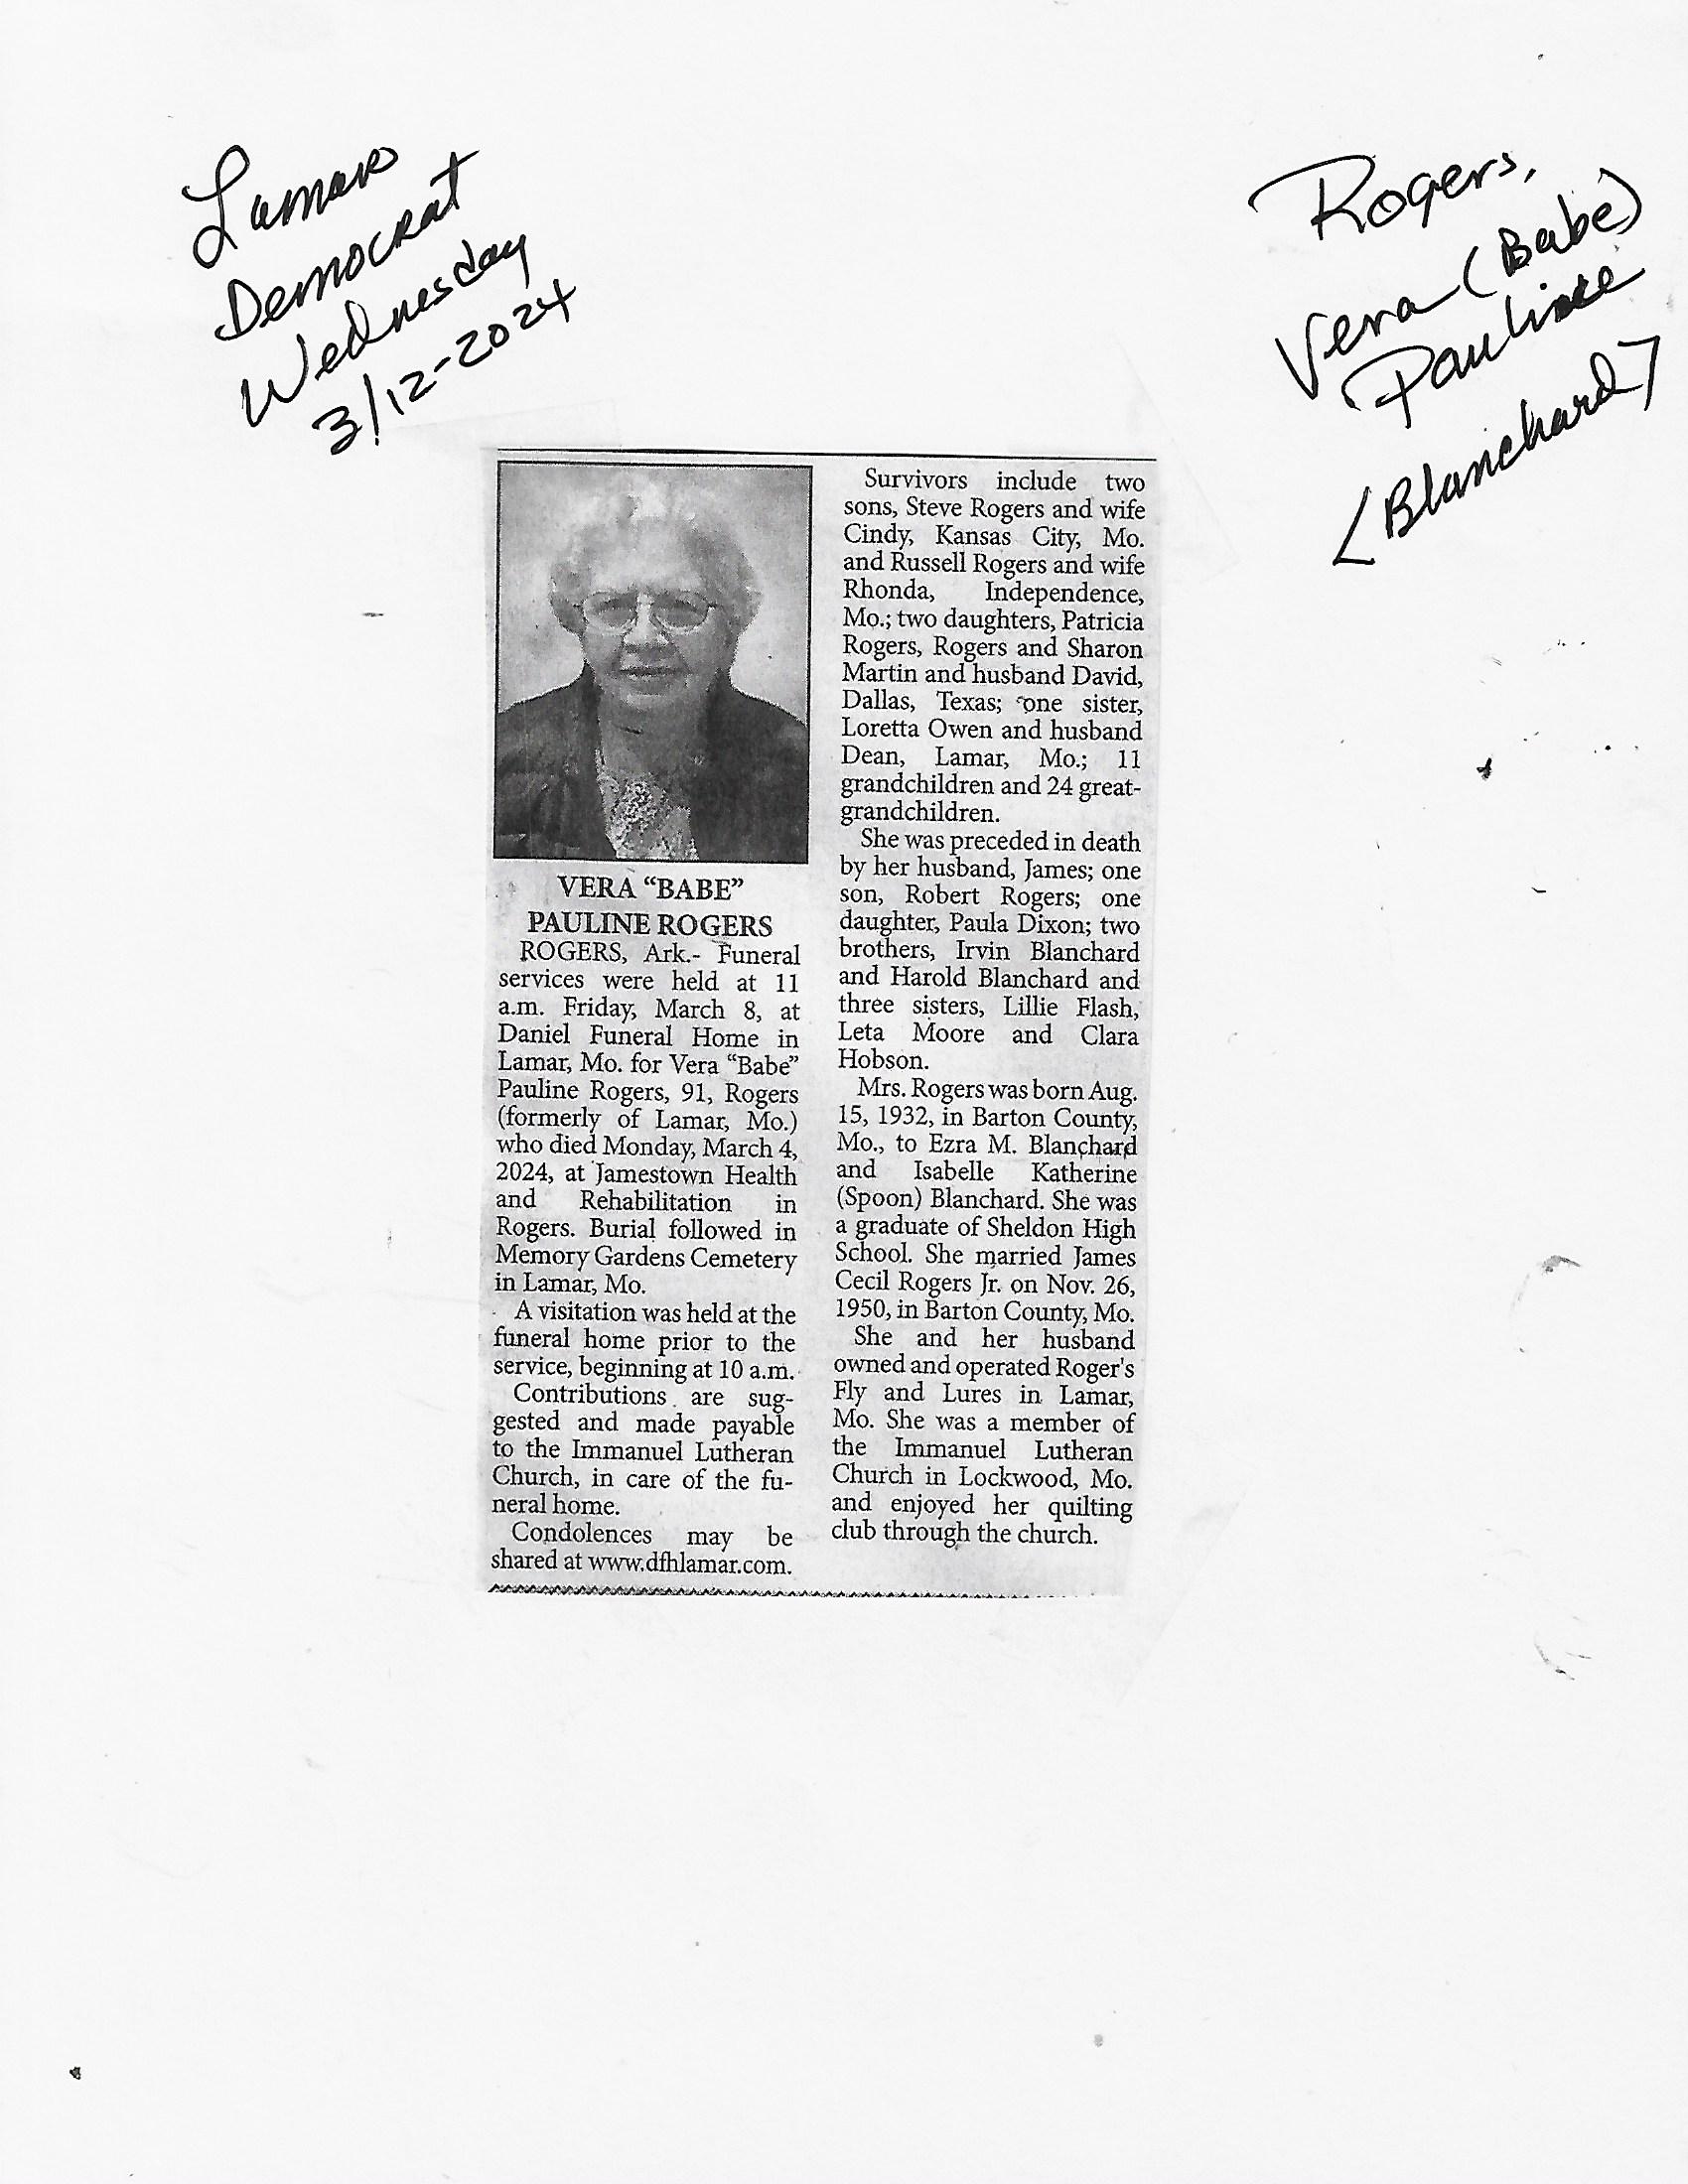 Lamar
Democrat
Wednesday
3/12-2024
Rogers,
Vera (Babe)
Pauline
<Blanchard>
VERA “BABE”
PAULINE ROGERS
ROGERS, Ark.- Funeral
services were held at 11
a.m. Friday, March 8, at
Daniel Funeral Home in
Lamar, Mo. for Vera “Babe”
Pauline Rogers, 91, Rogers
(formerly of Lamar, Mo.)
who died Monday, March 4,
2024, at Jamestown Health
and Rehabilitation in
Rogers. Burial followed in
Memory Gardens Cemetery
in Lamar, Mo.
A visitation was held at the
funeral home prior to the
service, beginning at 10 a.m.
Contributions are sug-
gested and made payable
to the Immanuel Lutheran
Church, in care of the fu-
neral home.
Condolences may be
shared at www.dfhlamar.com.
Survivors include two
sons, Steve Rogers and wife
Cindy, Kansas City, Mo.
and Russell Rogers and wife
Rhonda, Independence,
Mo.; two daughters, Patricia
Rogers, Rogers and Sharon
Martin and husband David,
Dallas, Texas; one sister,
Loretta Owen and husband
Dean, Lamar, Mo.; 11
grandchildren and 24 great-
grandchildren.
She was preceded in death
by her husband, James; one
son, Robert Rogers; one
daughter, Paula Dixon; two
brothers, Irvin Blanchard
and Harold Blanchard and
three sisters, Lillie Flash,
Leta Moore and Clara
Hobson.
Mrs. Rogers was born Aug.
15, 1932, in Barton County,
Mo., to Ezra M. Blanchard
and Isabelle Katherine
(Spoon) Blanchard. She was
a graduate of Sheldon High
School. She married James
Cecil Rogers Jr. on Nov. 26,
1950, in Barton County, Mo.
She and her husband
owned and operated Roger's
Fly and Lures in Lamar,
Mo. She was a member of
the Immanuel Lutheran
Church in Lockwood, Mo.
and enjoyed her quilting
club through the church.